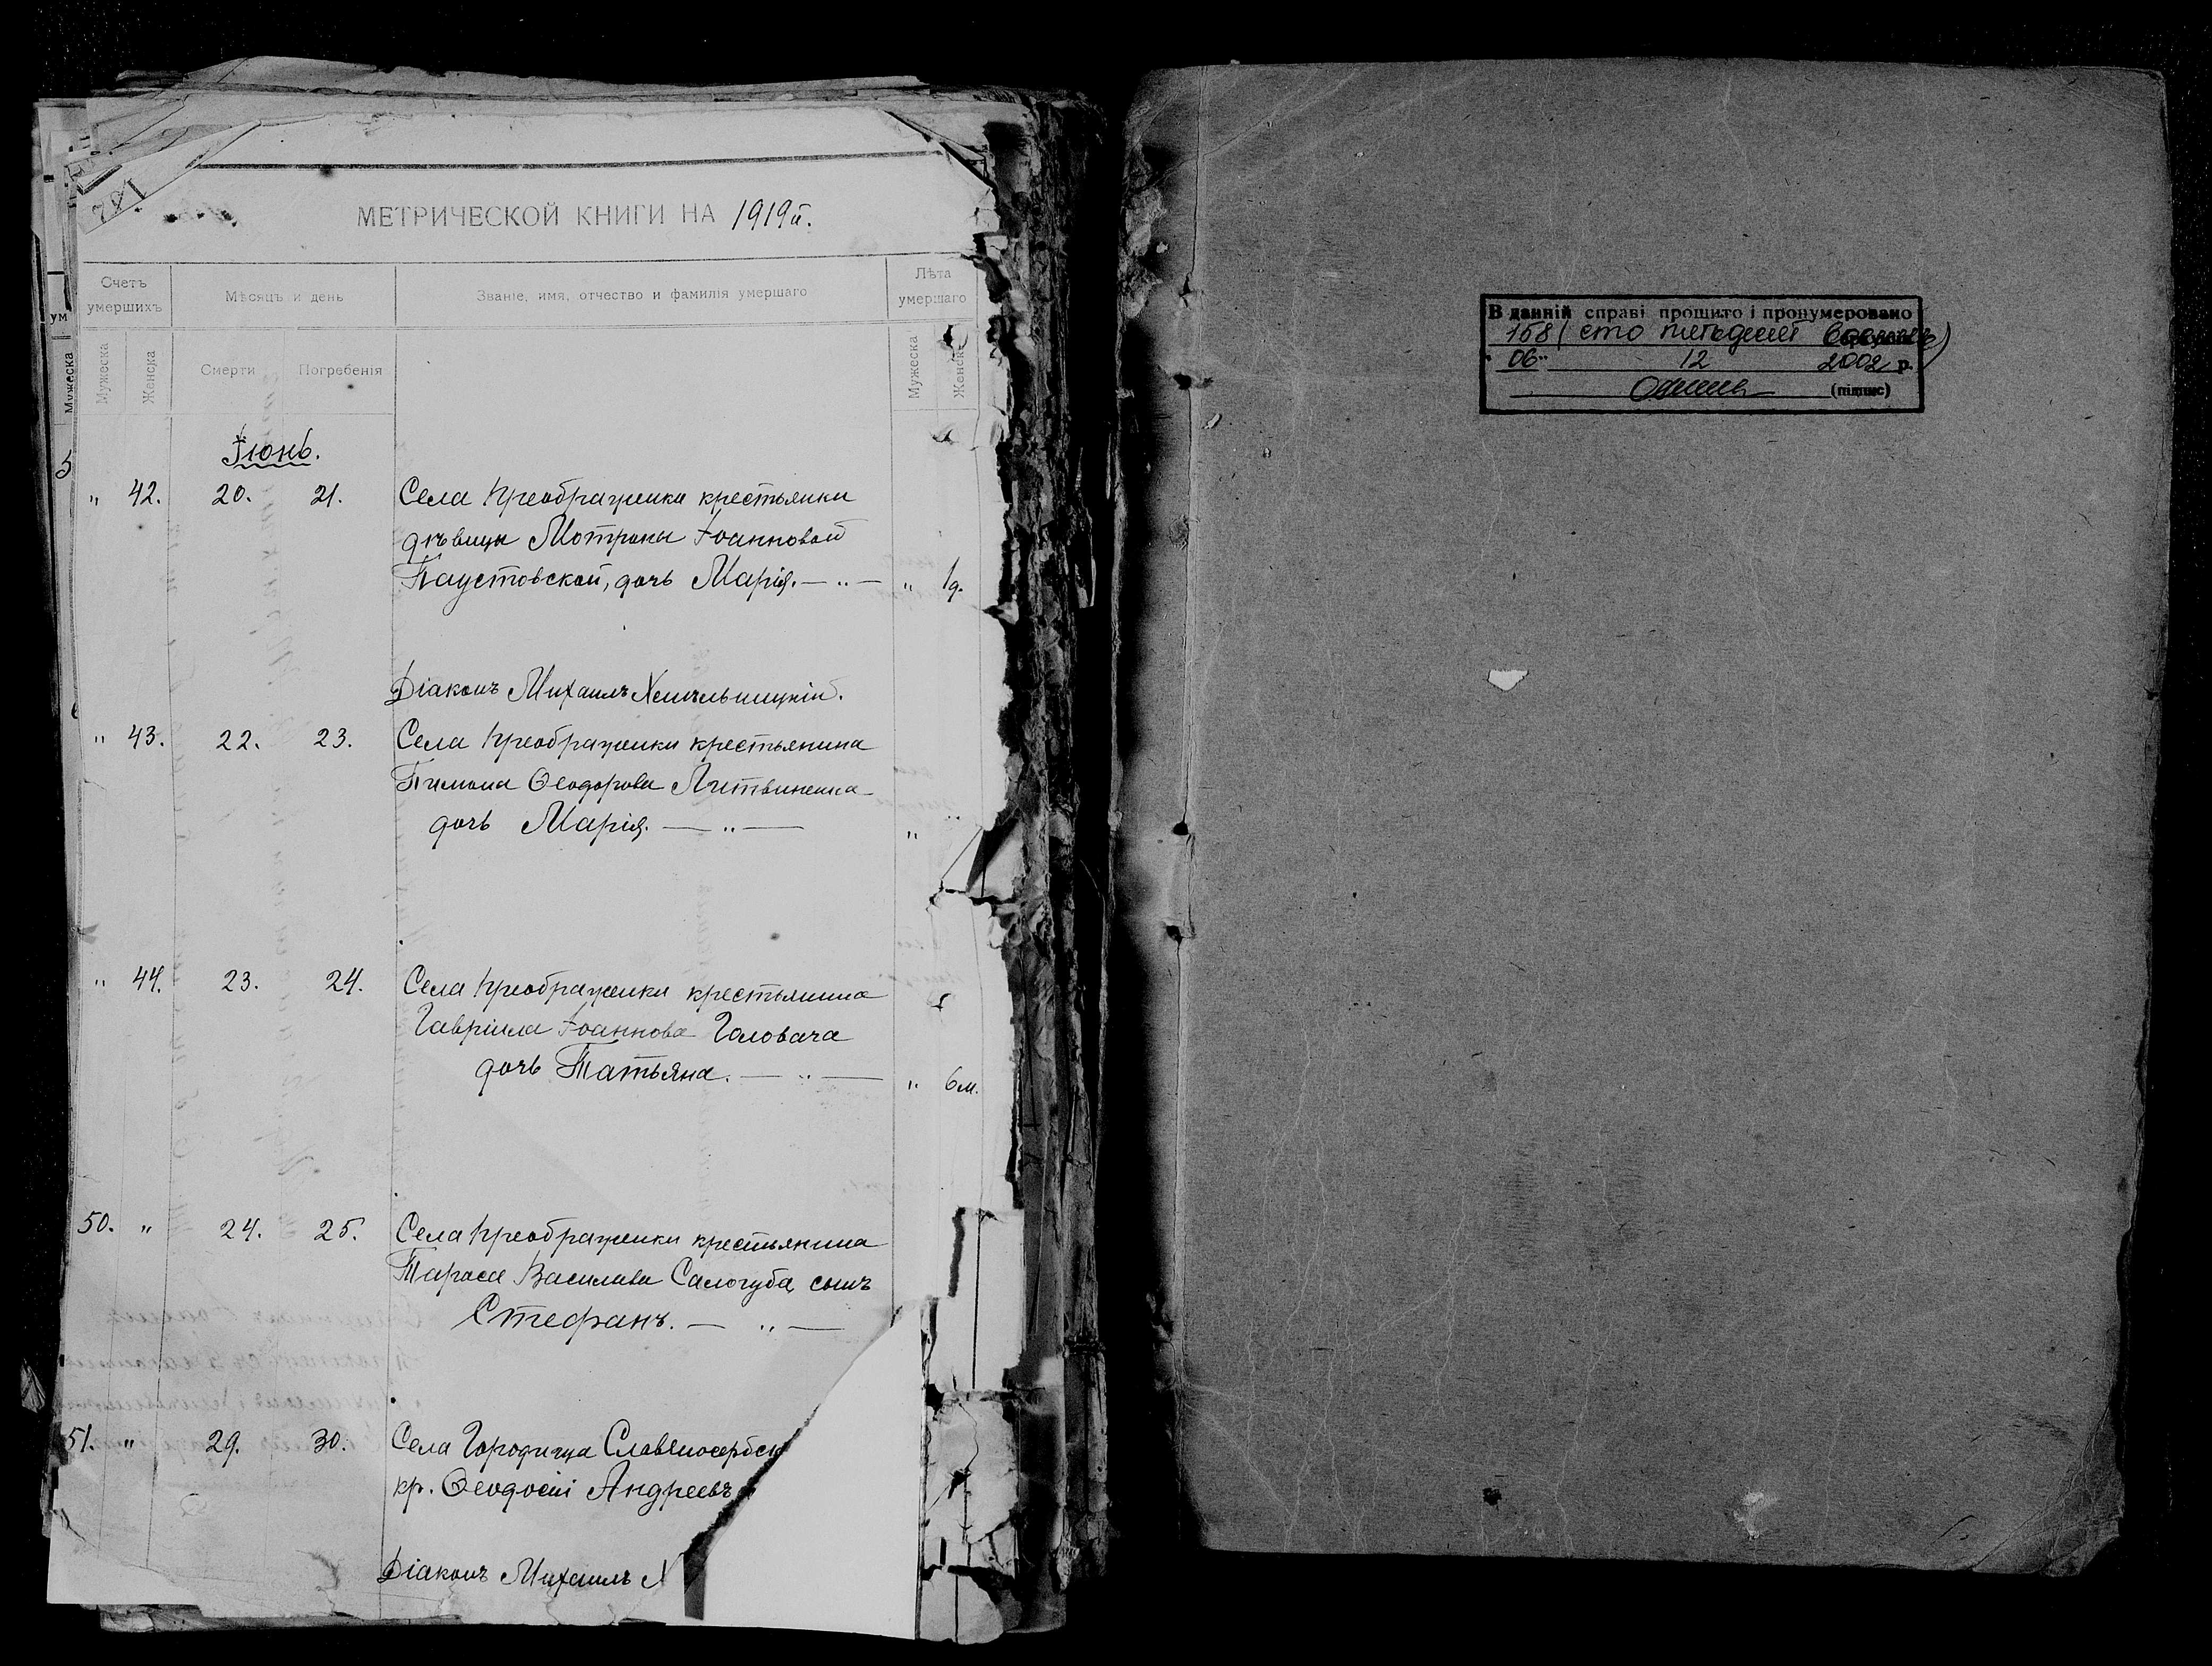 781
МЕТРИЧЕСКОЙ КНИГИ НА 1919й.
Счетъ умершихъ
Мѣсяцъ и день
Званіе, имя, отчество и фамилія умершаго
Лѣта умершаго
Мужеска
Женска
Смерти
Погребенія
Мужеска
Женска
ум
Мужеска
Іюнь.
" 42. 20. 21. Села Преображенки крестьянки
дѣвицы Мотроны Іоанновой
Паустовской, дочь Марія. — " — " 1д.
Діаконъ Михаилъ Хмѣльницкій.
" 43. 22. 23. Села Преображенки крестьянина
Пимона Ѳеодорова Литвиненка
дочь Марія. — " — "
" 44. 23. 24. Села Преображенки крестьянина
Гавріила Іоаннова Головача
дочь Татьяна. — " — " 6м.
50. " 24. 25. Села Преображенки крестьянина
Тараса Василіева Салогуба, сынъ
Стефанъ. — " —
51. " 29. 30. Села Городища Славяносербск
кр. Ѳеодосій Андреевъ
Діаконъ Михаилъ Х
В данній справі прошито і пронумеровано
158 (сто пятьдесят восемь)
06 12 2002 р.
(підпис)